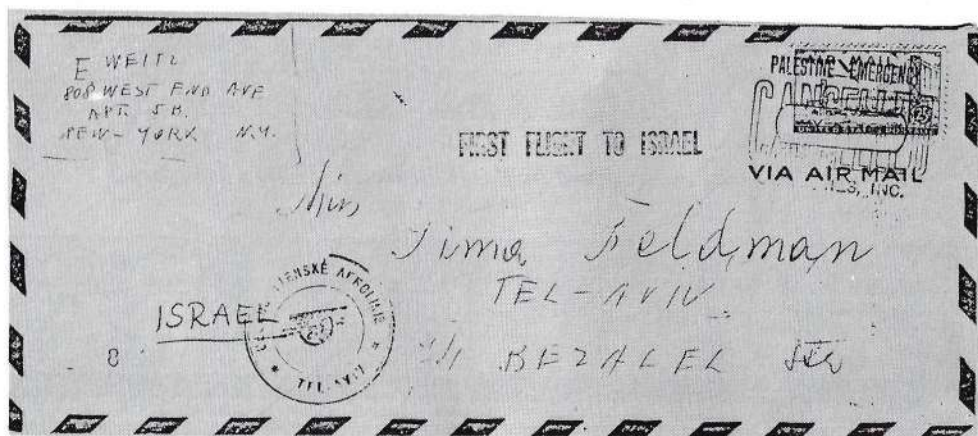 E WEITZ
808 WEST END AVE
APT. 5B.
NEW-YORK N.Y.
PALESTINE EMERGENCY
VIA AIR MAIL
INC.
FIRST FLIGHT TO ISRAEL
Miss
Sima Feldman
TEL-AVIV
BEZALEL Str
ISRAEL
8
ČESKOSLOVENSKÉ AEROLINIE
* TEL-AVIV *